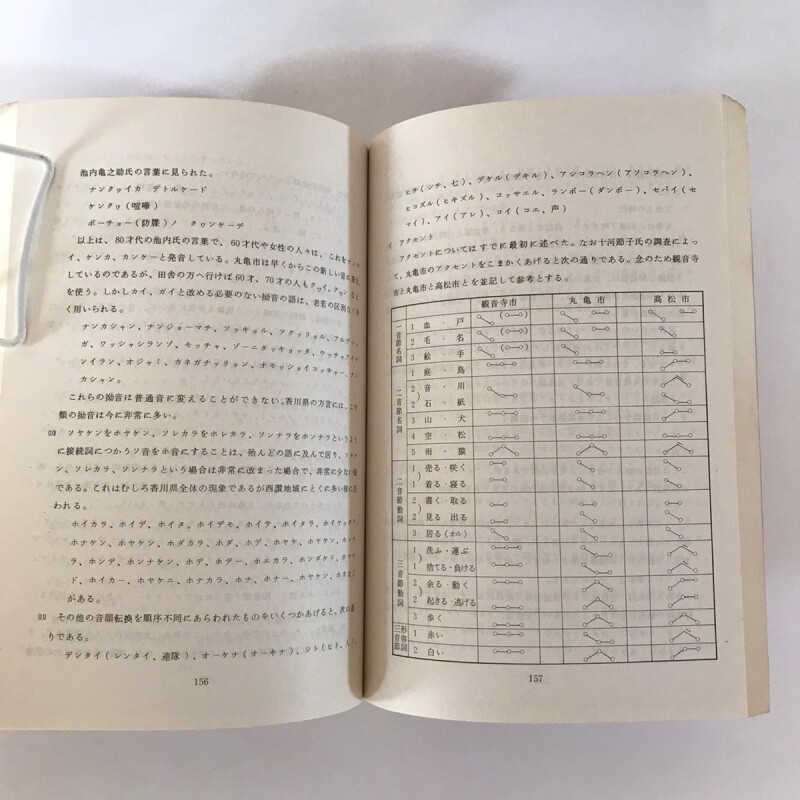 池内亀之助氏の言葉に見られた。
ナンクヮイカ デトルケード
ケンクヮ(喧嘩)
ボーチョー(防諜)ノ クヮンケーデ
以上は、80才代の池内氏の言葉で、60才代や女性の人々は、これをナン
イ、ケンカ、カンケーと発音している。丸亀市は早くからこの新しい音に変化
しているのであるが、田舎の方へ行けば60才、70才の人もクヮイ、クヮン など
を使う。しかしカイ、ガイと改める必要のない拗音の語は、老若の区別なく多
く用いられる。
ナンカシャン、ナンジョーマチ、ソッキョル、フクッリョル、アルデ
ガ、ワッシャシランゾ、モッチャ、ゾーニタッキョッタ、ウッチャ
ンイラン、オジャミ、カネガナッリョン、オモッショイコッチャー、ナン
カシャン。
これらの拗音は普通音に変えることができない。香川県の方言には、これ
類の拗音は今に非常に多い。
ソヤケンをホヤケン、ソレカラをホレカラ、ソンナラをホンナラというよう
に接続詞につかうソ音をホ音にすることは、殆んどの語に及んで居り、ソヤケ
ン、ソレカラ、ソンナラという場合は非常に改まった場合で、非常に少ない様
である。これはむしろ香川県全体の現象であるが西讃地域にとくに多い様に思
われる。
ホイカラ、ホイデ、ホイタ、ホイデモ、ホイラ、ホイタラ、ホイヤ
ホナケン、ホヤケン、ホダカラ、ホダ、ホデ、ホヤケ、ホヤケン、ホン
ラ、ホンデ、ホンナケン、ホデ、ホデー、ホエカラ、ホンダケド、ホヤケ
ド、ホイカー、ホヤケニ、ホナカラ、ホナ、ホナー、ホヤケン、ホカ
がある。
その他の音韻転換を順序不同にあらわれたものをいくつかあげると、次の通
りである。
デンタイ(レンタイ、連隊)、オーケナ(オーキナ)。シト(ヒト、人)、
156
ヒチ(シチ、七)、デケル(デキル)、アシコラヘン(アソコラヘン)、
ヒコズル(ヒキズル)、コッサエル、ランボー(ダンボー)、セバイ(セ
マイ)、アイ(アレ)、コイ(コエ、声)
イ アクセント
アクセントについてはすでに最初に述べた。なお十河節子氏の調査によっ
て、丸亀市のアクセントをこまかくあげると次の通りである。念のため観音寺
市と丸亀市と高松市とを並記して参考とする。
観音寺市 丸亀市 高松市
一音節名詞
1 血・戸
2 毛・名
3 絵・手
二音節名詞
1 庭・鳥
2 音・川
2 石・紙
3 山・犬
4 空・松
5 雨・猿
二音節動詞
1 売る・咲く
1 着る・寝る
2 書く・取る
2 見る 出る
3 居る(オル)
三音節動詞
1 洗ふ・運ぶ
1 捨てる・負ける
2 余る・動く
2 起きる・逃げる
3 歩く
三音節形容詞
1 赤い
2 白い
157